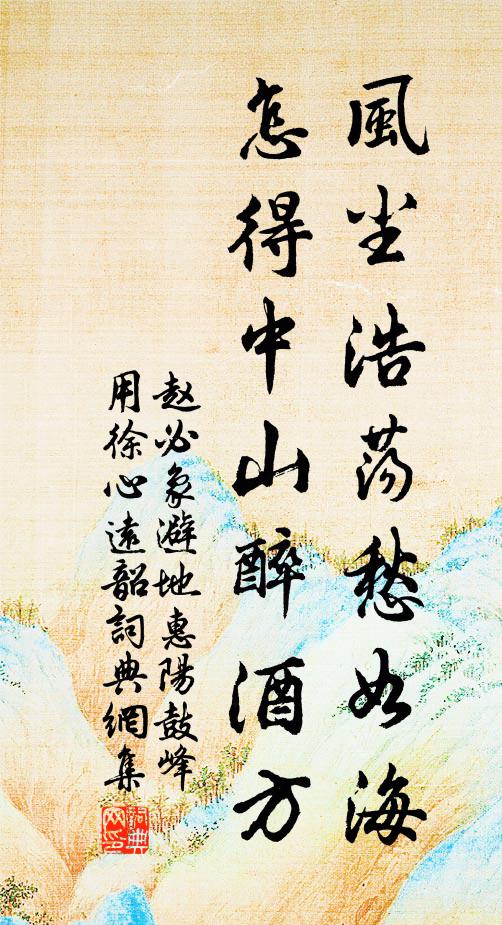 風尘浩荡愁如海
怎得中山醉酒方
赵必象避地惠陽鼓峰
用徐心遠韶詞典網集
詞典网印